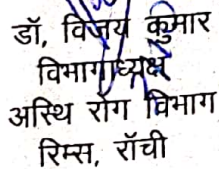 डॉ, विजय कुमार
विभागाध्यक्ष
अस्थि रोग विभाग
रिम्स, राॅची